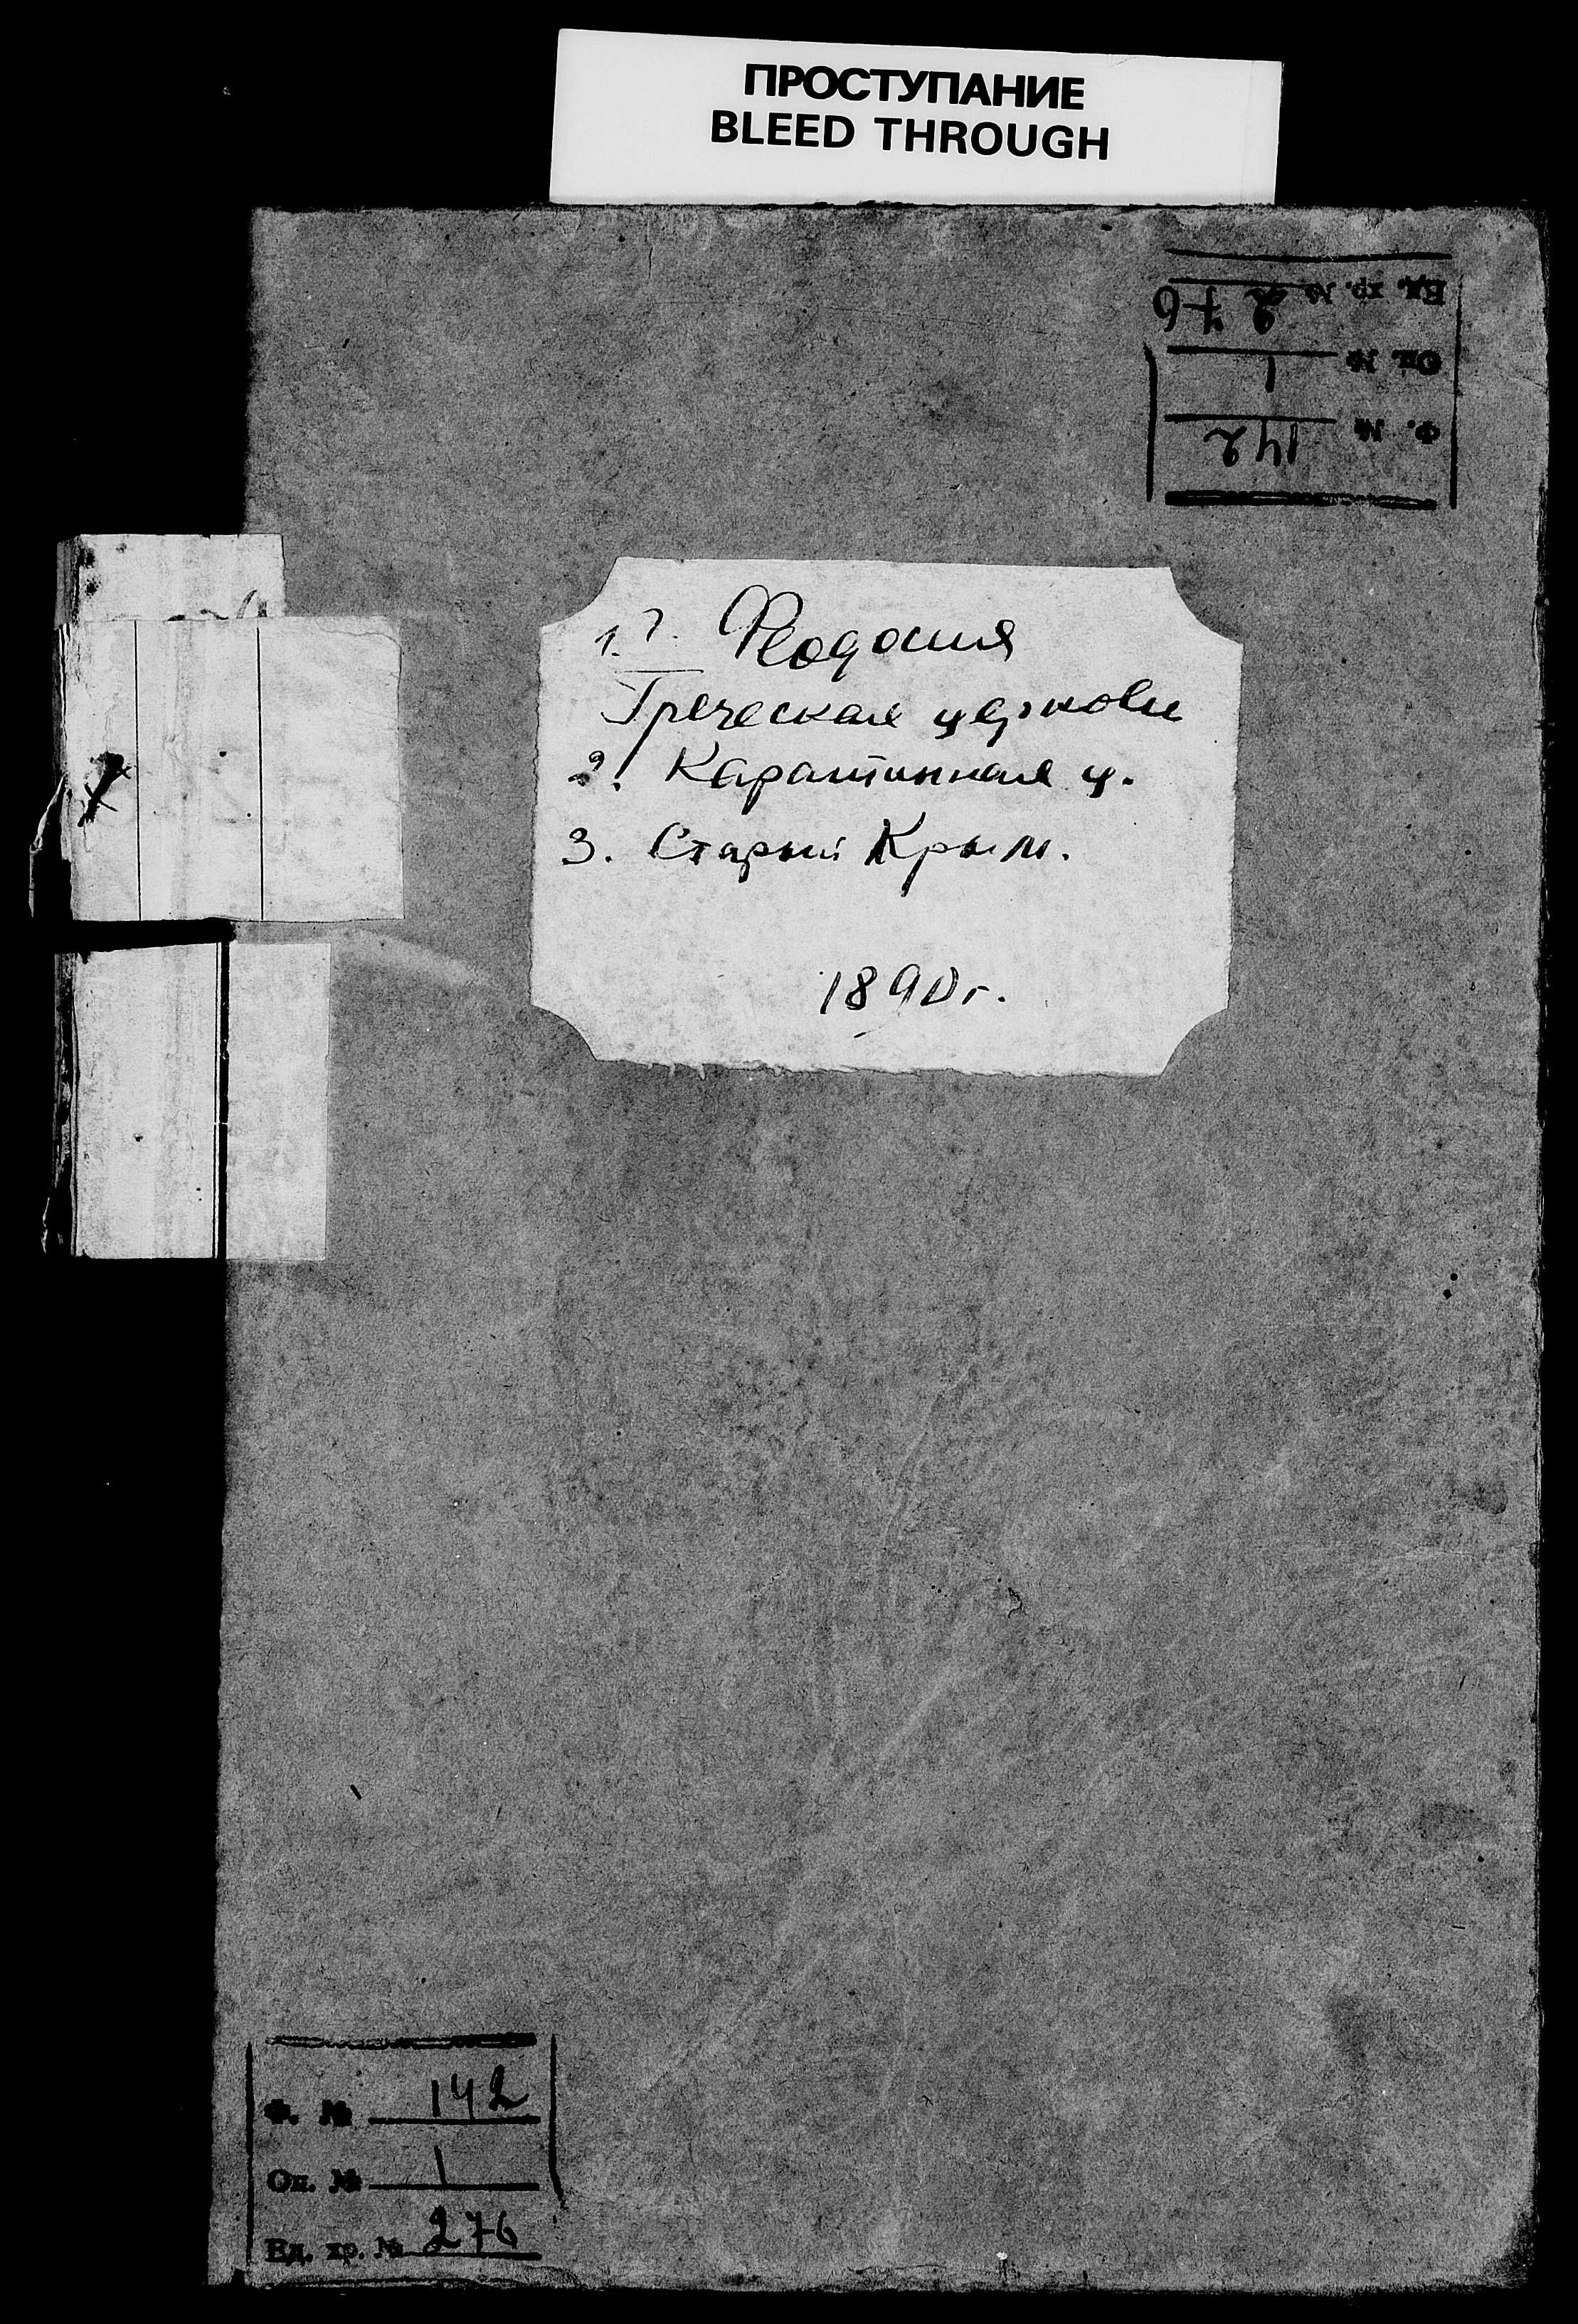 ПРОСТУПАНИЕ
BLEED THROUGH
Ед. хр. № 276
Оп. № 1
Ф. № 142
1. г. Феодосия
Греческая церковь
2. Карантинная ц.
3. Старый Крым.
1890 г.
Ф. № 142
Оп. № 1
Ед. хр. № 276